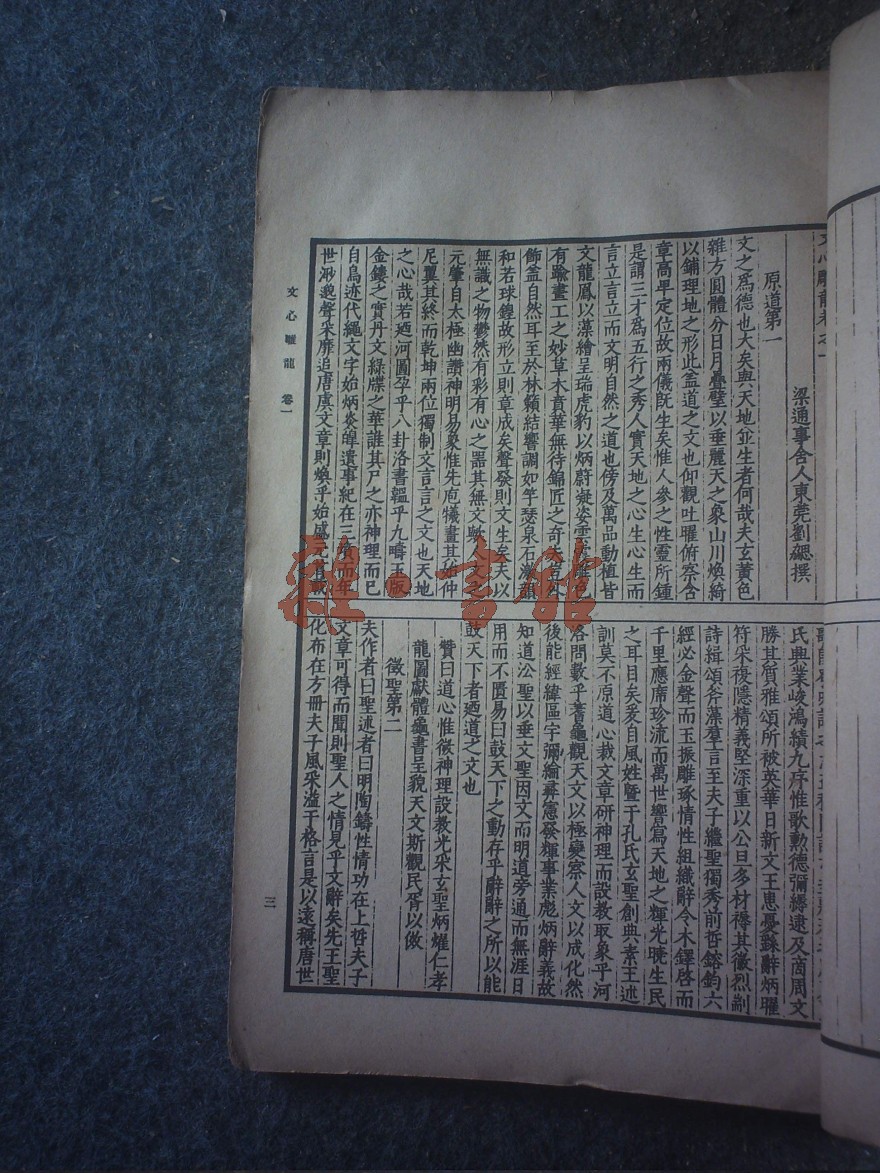 文心雕龍卷之一
梁通事舍人東莞劉勰撰
原道第一
文之爲德也大矣與天地並生者何哉夫玄黃色
雜方圓體分日月疊璧以垂麗天之象山川煥綺
以鋪理地之形此盖道之文也仰觀吐曜俯察含
章高卑定位故兩儀旣生矣惟人參之性靈所鍾
是謂三才爲五行之秀人實天地之心生心生而
言立言立而文明自然之道也傍及萬品動植皆
文龍鳳以藻繪呈瑞虎豹以炳蔚凝姿雲霞雕色
有踰畫工之妙草木賁華無待錦匠之奇夫豈外
飾盖自然耳至於林籟結響調如竽瑟泉石激韻
和若球鍠故形立則章成矣聲發則文生矣夫以
無識之物鬱然有彩有心之器其無文歟人文之
元肇自太極幽讚神明易象惟先庖犧畫其始仲
尼翼其終而乾坤兩位獨制文言言之文也天地
之心哉若廼河圖孕乎八卦洛書韞乎九疇玉版
金鏤之實丹文綠牒之華誰其尸之亦神理而已
自鳥迹代繩文字始炳炎皥遺事紀在三墳而年
世渺邈聲采靡追唐虞文章則煥乎始盛元首載
氏興業峻鴻績九序惟歌勲德彌縟逮及商周文
勝其質雅頌所被英華日新文王患憂繇辭炳曜
符采複隱精義堅深重以公旦多材褥其徽烈剬
詩緝頌斧藻羣言至夫子繼聖獨秀前哲鎔鈞六
經必金聲而玉振雕琢情性組織辭令木鐸啓而
千里應席珍流而萬世響寫天地之輝光曉生民
之耳目矣爰自風姓暨于孔氏玄聖創典素王述
訓莫不原道心裁文章研神理而設教取象乎河
洛問數乎蓍龜觀天文以極變察人文以成化然
後能經緯區宇彌綸彛憲發輝事業彪炳辭義故
知道沿聖以垂文聖因文而明道旁通而無涯日
用而不匱易曰鼓天下之動存乎辭辭之所以能
鼓天下者廼道之文也
贊曰道心惟微神理設教光采玄聖炳燿仁孝
龍圖獻體龜書呈貌天文斯觀民胥以傚
徵聖第二
夫作者曰聖述者曰明陶鑄性情功在上哲夫子
文章可得而聞則聖人之情見乎文辭矣先王聖
化布在方冊夫子風采溢于格言是以遠稱唐世
文心雕龍 卷一
三
雜·書館